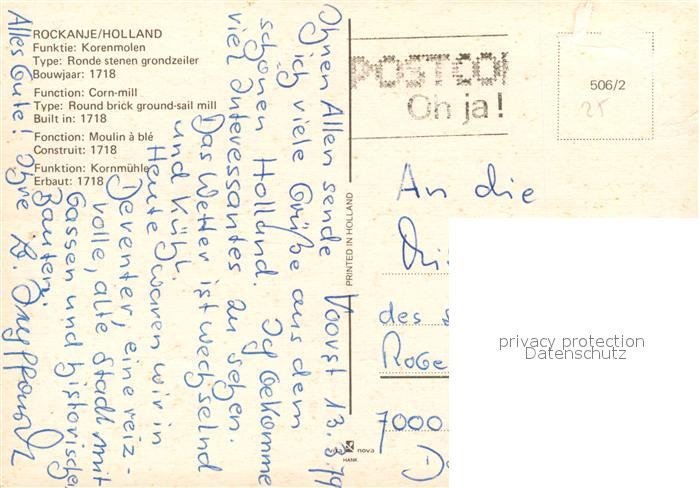 ROCKANJE/HOLLAND
Funktie: Korenmolen
Type: Ronde stenen grondzeiler
Bouwjaar: 1718
Function: Corn-mill
Type: Round brick ground-sail mill
Built in: 1718
Fonction: Moulin à blé
Construit: 1718
Funktion: Kornmühle
Erbaut: 1718
Voorst 13.8.79
Ihnen Allen sende
ich viele Grüße aus dem
schönen Holland. Ich bekomme
viel Interessantes zu sehen.
Das Wetter ist wechselnd
und kühl.
Heute waren wir in
Deventer, eine reiz-
volle, alte Stadt mit
Gassen und historischen
Bauten.
Alles Gute! Ihre
PRINTED IN HOLLAND
vita nova
HANK.
POSTCO
Oh ja!
506/2
25
An die
des
Roge
7000
privacy protection
Datenschutz